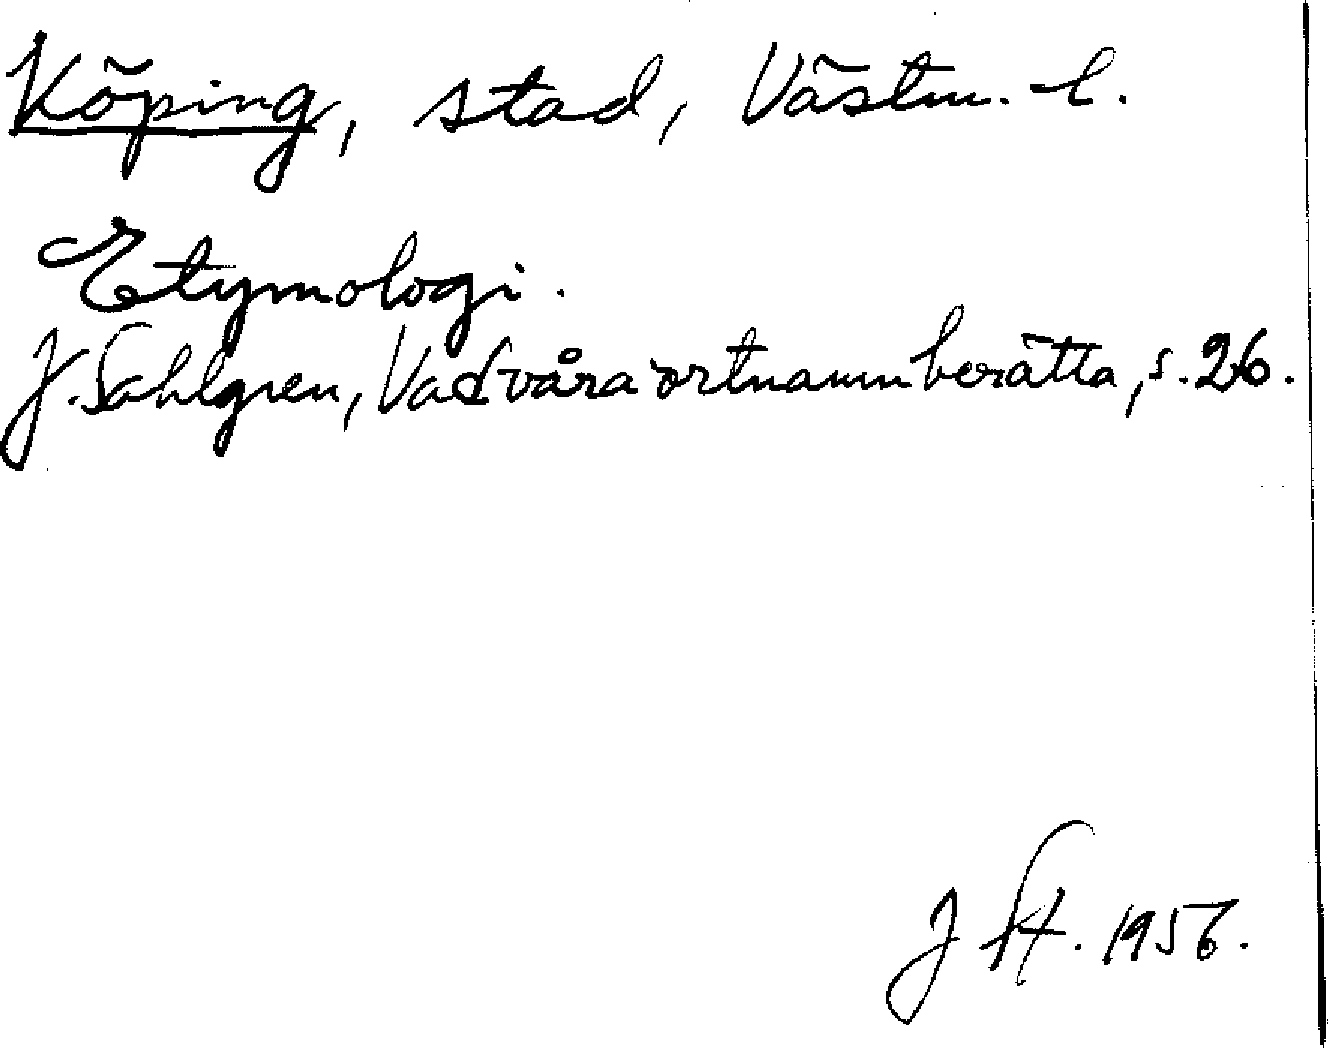 Köping, stad, Västm. l.
Etymologi.
J. Sahlgren, Vad våra ortnamn berätta, s. 26.
J 1956.